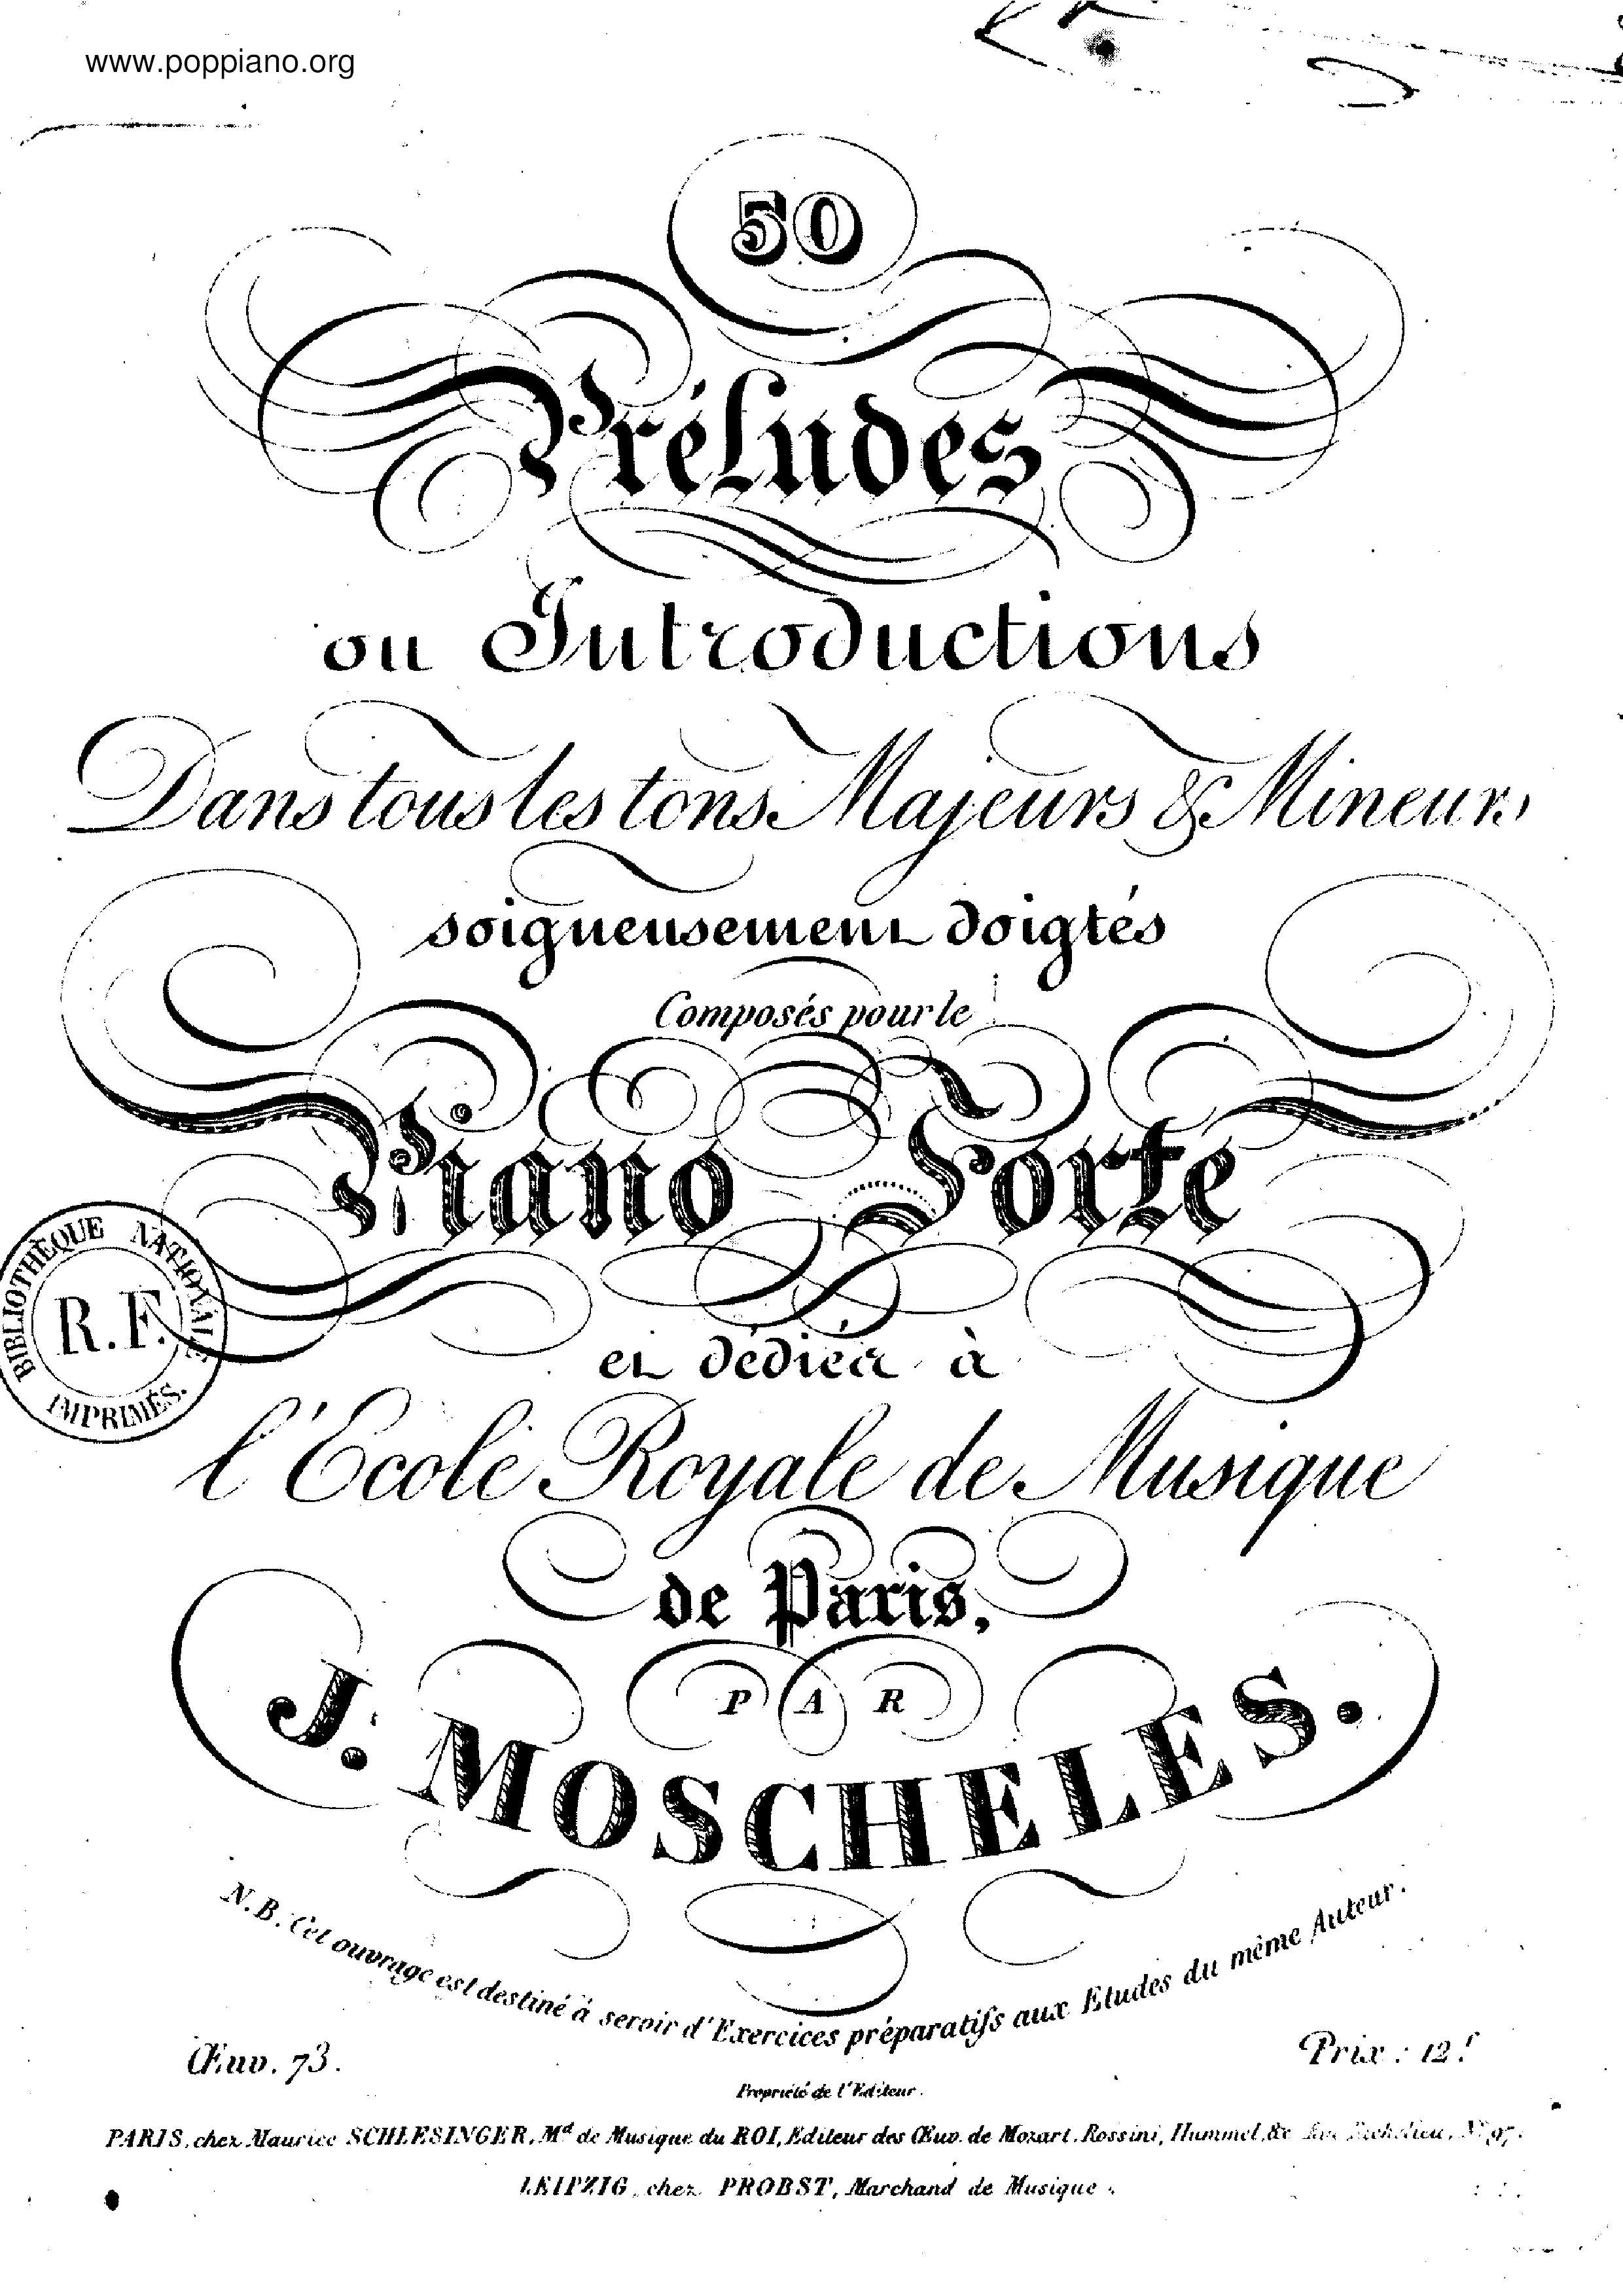 www.poppiano.org
50
Préludes
ou Introductions
Dans tous les tons Majeurs & Mineurs
soigneusement doigtés
Composés pour le
Piano Forte
et dédiés à
l'École Royale de Musique
de Paris,
PAR
J. MOSCHELES.
N.B. Cet ouvrage est destiné à servir d'Exercices préparatifs aux Etudes du même Auteur.
Œuv. 73.
Prix : 12.f
Propriété de l'Editeur.
PARIS, chez Maurice SCHLESINGER, Md de Musique du ROI, Editeur des Œuv. de Mozart, Rossini, Hummel, &c Rue Richelieu, No 97.
LEIPZIG, chez PROBST, Marchand de Musique.
BIBLIOTHÈQUE NATIONALE
R.F.
IMPRIMÉS.